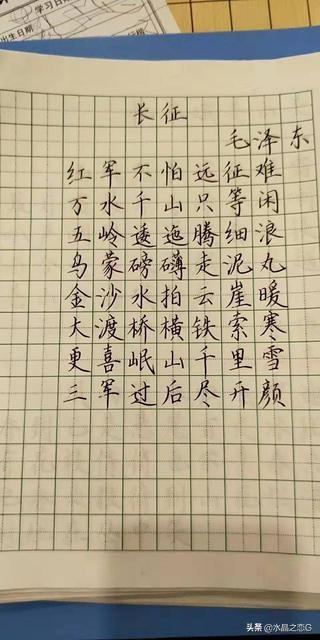 学习日期
出生日期
长征
毛泽东
红军不怕远征难
万水千山只等闲
五岭逶迤腾细浪
乌蒙磅礴走泥丸
金沙水拍云崖暖
大渡桥横铁索寒
更喜岷山千里雪
三军过后尽开颜
头条 @水晶之恋G